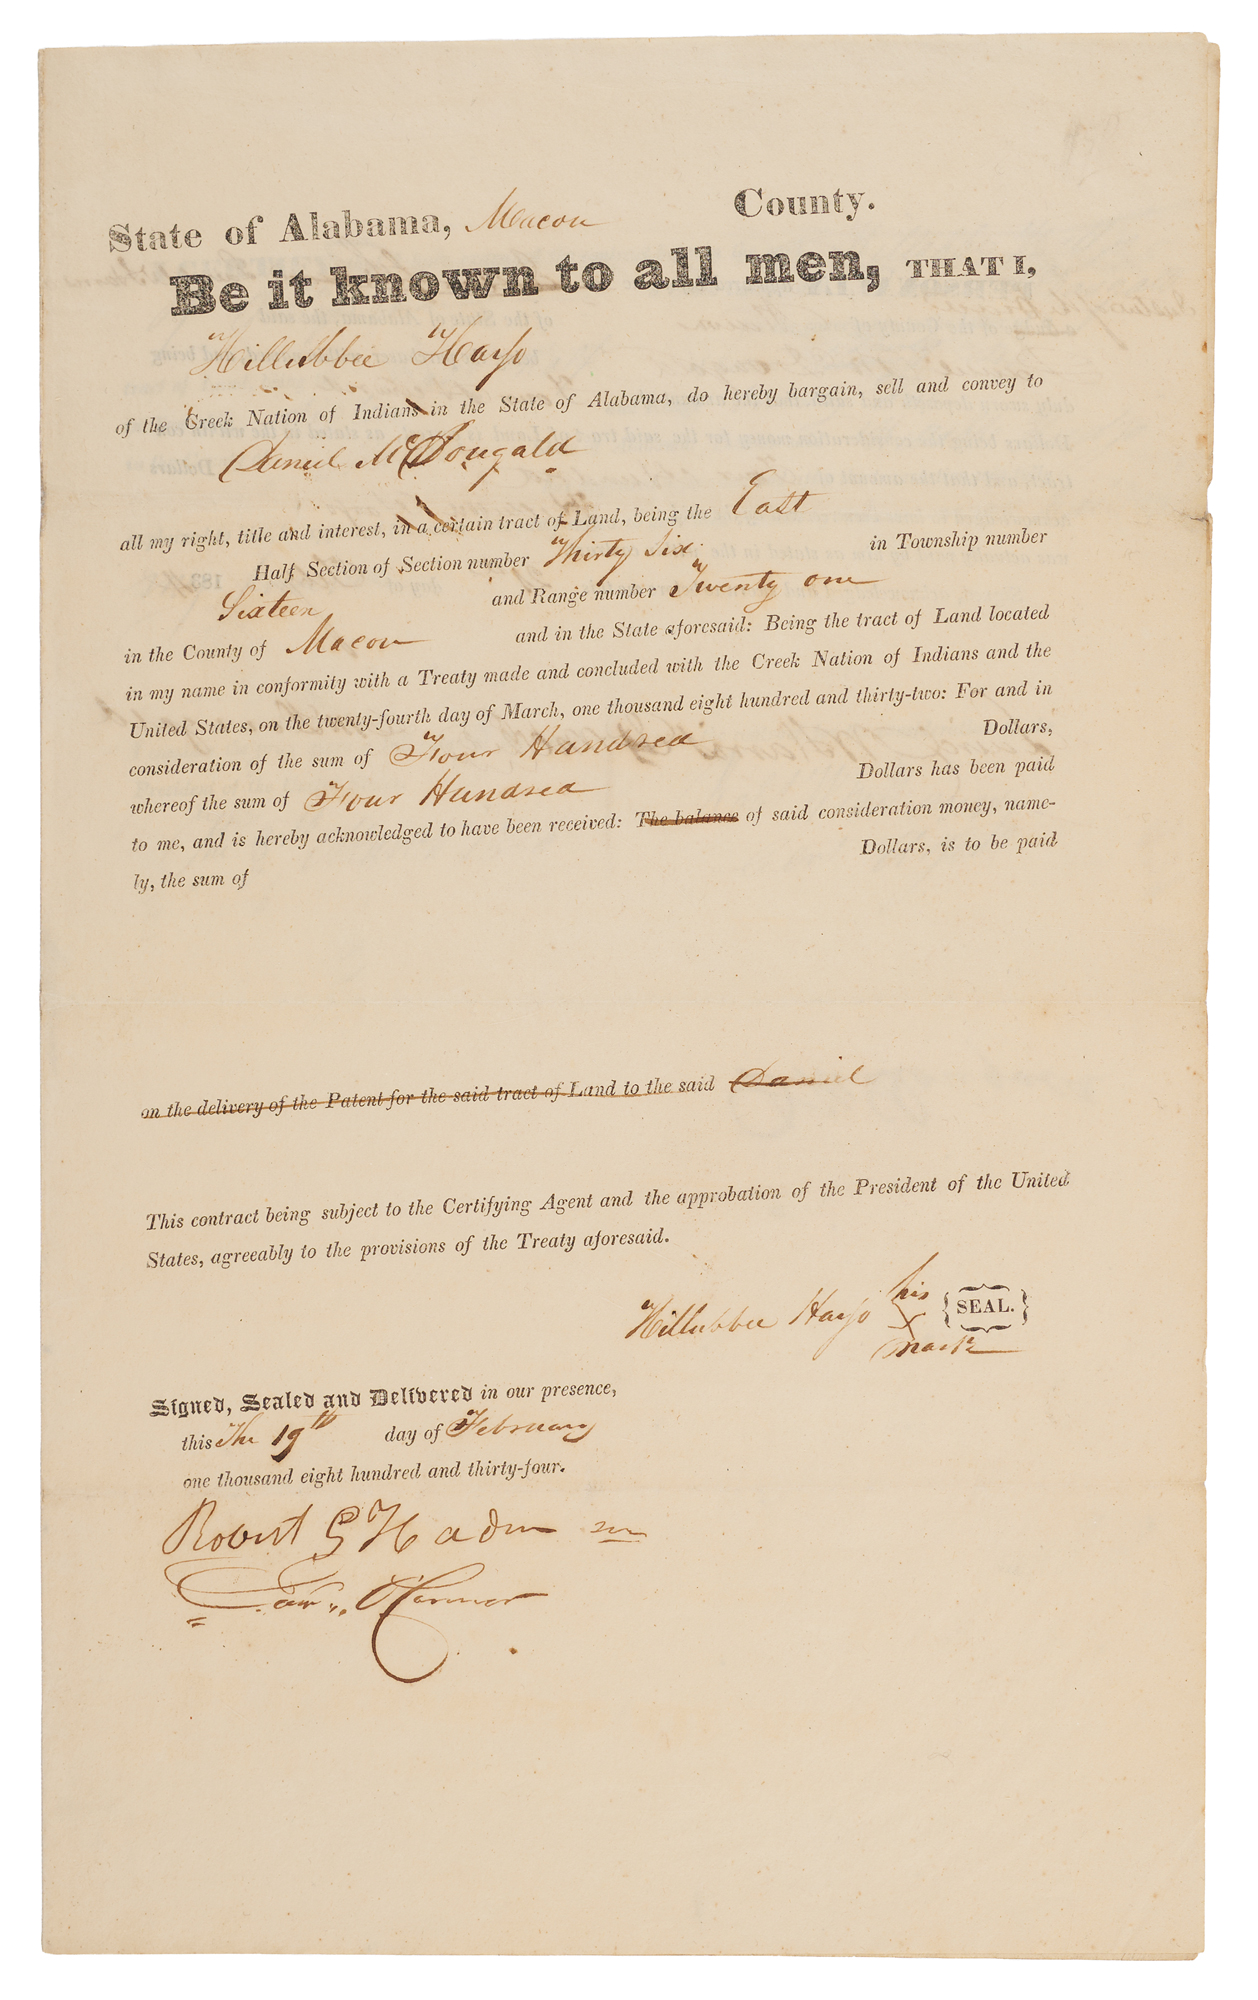 State of Alabama, Macon County.
Be it known to all men, THAT I,
Hillubbee Harjo
of the Creek Nation of Indians in the State of Alabama, do hereby bargain, sell and convey to
Daniel McDougald
all my right, title and interest, in a certain tract of Land, being the East
Half Section of Section number Thirty Six in Township number
Sixteen and Range number Twenty one
in the County of Macon and in the State aforesaid: Being the tract of Land located
in my name in conformity with a Treaty made and concluded with the Creek Nation of Indians and the
United States, on the twenty-fourth day of March, one thousand eight hundred and thirty-two: For and in
consideration of the sum of Four Hundred Dollars,
whereof the sum of Four Hundred Dollars has been paid
to me, and is hereby acknowledged to have been received: The balance of said consideration money, name-
ly, the sum of Dollars, is to be paid
on the delivery of the Patent for the said tract of Land to the said Daniel
This contract being subject to the Certifying Agent and the approbation of the President of the United
States, agreeably to the provisions of the Treaty aforesaid.
Hillubbee Harjo his x mark {SEAL.}
Signed, Sealed and Delivered in our presence,
this the 19th day of February
one thousand eight hundred and thirty-four.
Robert G